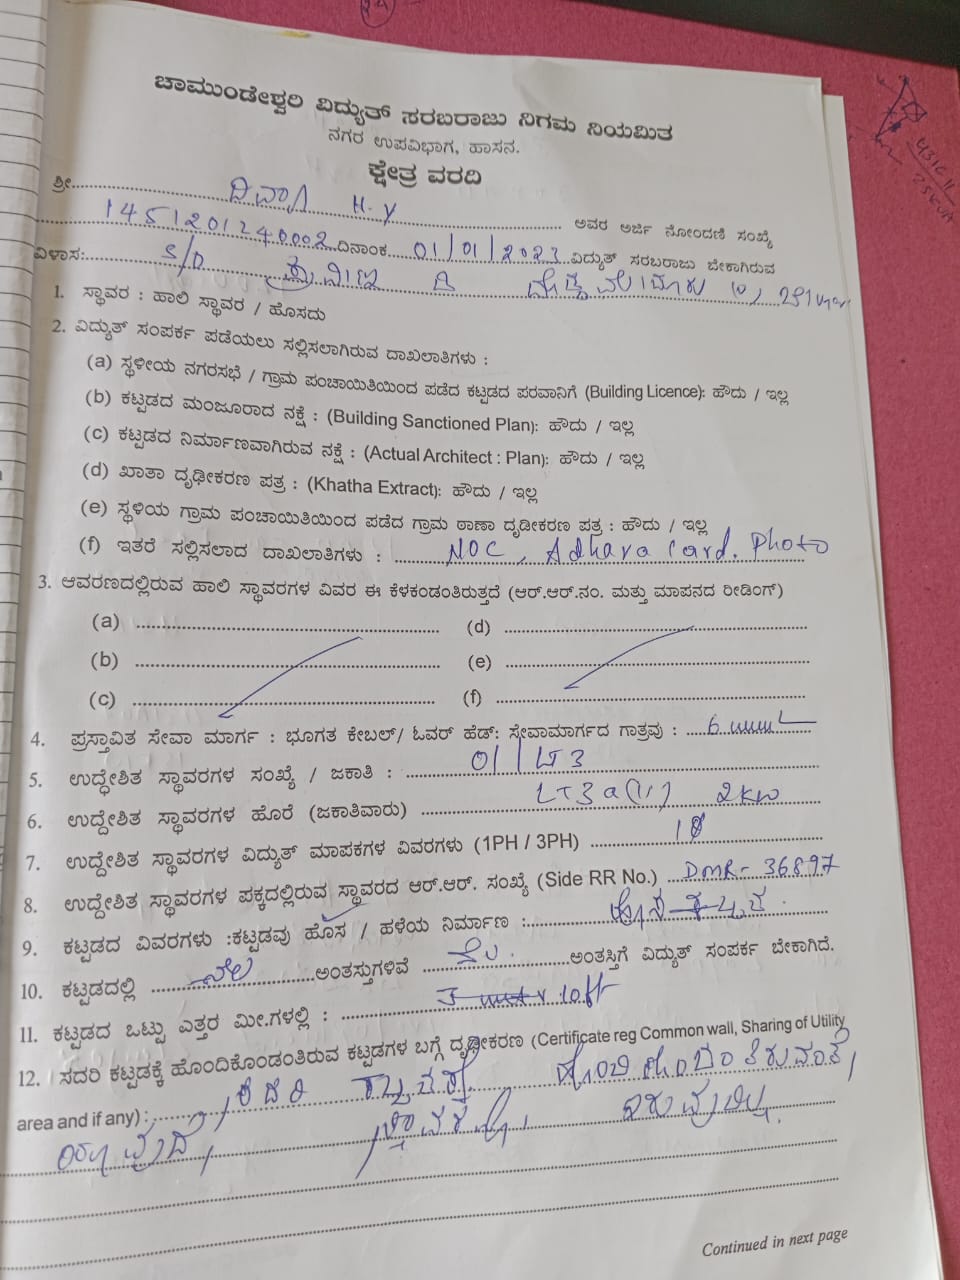 ಚಾಮುಂಡೇಶ್ವರಿ ವಿದ್ಯುತ್ ಸರಬರಾಜು ನಿಗಮ ನಿಯಮಿತ
ನಗರ ಉಪವಿಭಾಗ, ಹಾಸನ.
ಕ್ಷೇತ್ರ ವರದಿ
ಶ್ರೀ H.Y ಅವರ ಅರ್ಜಿ ನೋಂದಣಿ ಸಂಖ್ಯೆ
145120124 0002 ದಿನಾಂಕ 01/01/2023 ವಿದ್ಯುತ್ ಸರಬರಾಜು ಬೇಕಾಗಿರುವ
ವಿಳಾಸ: S/o
1. ಸ್ಥಾವರ : ಹಾಲಿ ಸ್ಥಾವರ / ಹೊಸದು
2. ವಿದ್ಯುತ್ ಸಂಪರ್ಕ ಪಡೆಯಲು ಸಲ್ಲಿಸಲಾಗಿರುವ ದಾಖಲಾತಿಗಳು :
(a) ಸ್ಥಳೀಯ ನಗರಸಭೆ / ಗ್ರಾಮ ಪಂಚಾಯಿತಿಯಿಂದ ಪಡೆದ ಕಟ್ಟಡದ ಪರವಾನಿಗೆ (Building Licence): ಹೌದು / ಇಲ್ಲ
(b) ಕಟ್ಟಡದ ಮಂಜೂರಾದ ನಕ್ಷೆ : (Building Sanctioned Plan): ಹೌದು / ಇಲ್ಲ
(c) ಕಟ್ಟಡದ ನಿರ್ಮಾಣವಾಗಿರುವ ನಕ್ಷೆ : (Actual Architect : Plan): ಹೌದು / ಇಲ್ಲ
(d) ಖಾತಾ ದೃಢೀಕರಣ ಪತ್ರ : (Khatha Extract): ಹೌದು / ಇಲ್ಲ
(e) ಸ್ಥಳಿಯ ಗ್ರಾಮ ಪಂಚಾಯಿತಿಯಿಂದ ಪಡೆದ ಗ್ರಾಮ ಠಾಣಾ ದೃಡೀಕರಣ ಪತ್ರ : ಹೌದು / ಇಲ್ಲ
(f) ಇತರೆ ಸಲ್ಲಿಸಲಾದ ದಾಖಲಾತಿಗಳು : NOC, Adhara Card. Photo
3. ಆವರಣದಲ್ಲಿರುವ ಹಾಲಿ ಸ್ಥಾವರಗಳ ವಿವರ ಈ ಕೆಳಕಂಡಂತಿರುತ್ತದೆ (ಆರ್.ಆರ್.ನಂ. ಮತ್ತು ಮಾಪನದ ರೀಡಿಂಗ್)
(a) (d)
(b) (e)
(c) (f)
4. ಪ್ರಸ್ತಾವಿತ ಸೇವಾ ಮಾರ್ಗ : ಭೂಗತ ಕೇಬಲ್/ ಓವರ್ ಹೆಡ್: ಸೇವಾಮಾರ್ಗದ ಗಾತ್ರವು :
5. ಉದ್ಧೇಶಿತ ಸ್ಥಾವರಗಳ ಸಂಖ್ಯೆ / ಜಕಾತಿ : 01 / LT3
6. ಉದ್ದೇಶಿತ ಸ್ಥಾವರಗಳ ಹೊರೆ (ಜಕಾತಿವಾರು) LT3a(ii) 2kw
7. ಉದ್ದೇಶಿತ ಸ್ಥಾವರಗಳ ವಿದ್ಯುತ್ ಮಾಪಕಗಳ ವಿವರಗಳು (1PH / 3PH) 1Ø
8. ಉದ್ದೇಶಿತ ಸ್ಥಾವರಗಳ ಪಕ್ಕದಲ್ಲಿರುವ ಸ್ಥಾವರದ ಆರ್.ಆರ್. ಸಂಖ್ಯೆ (Side RR No.) DMR-36897
9. ಕಟ್ಟಡದ ವಿವರಗಳು :ಕಟ್ಟಡವು ಹೊಸ / ಹಳೆಯ ನಿರ್ಮಾಣ :
10. ಕಟ್ಟಡದಲ್ಲಿ ನೆಲ ಅಂತಸ್ತುಗಳಿವೆ ಅಂತಸ್ತಿಗೆ ವಿದ್ಯುತ್ ಸಂಪರ್ಕ ಬೇಕಾಗಿದೆ.
11. ಕಟ್ಟಡದ ಒಟ್ಟು ಎತ್ತರ ಮೀ.ಗಳಲ್ಲಿ : 10ft
12. ಸದರಿ ಕಟ್ಟಡಕ್ಕೆ ಹೊಂದಿಕೊಂಡಂತಿರುವ ಕಟ್ಟಡಗಳ ಬಗ್ಗೆ ದೃಢೀಕರಣ (Certificate reg Common wall, Sharing of Utility
area and if any) : ಸದರಿ
Continued in next page